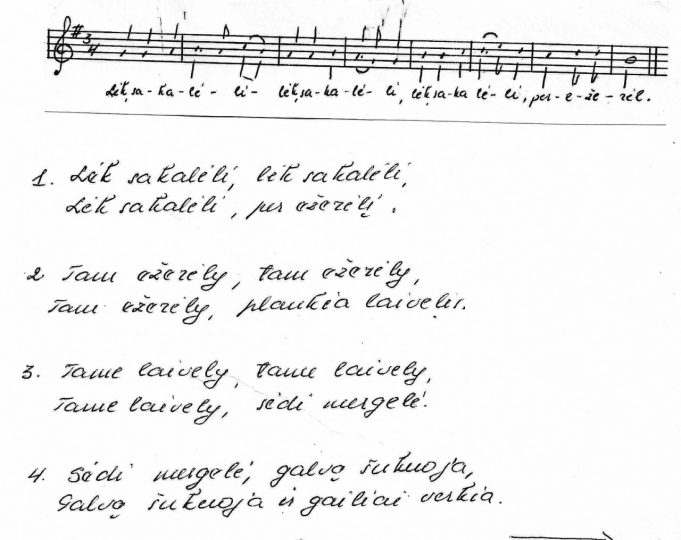 Lėk, sa-ka-lė-li- lėk, sa-ka-lė-li, lėk, sa-ka lė-li, per-e-že-rėl.
1. Lėk sakalėli, lėk sakalėli,
Lėk sakalėli, per ežerėlį.
2 Tam ežerėly, tam ežerėly,
Tam ežerėly, plaukia laivelis.
3. Tame laively, tame laively,
Tame laively, sėdi mergelė.
4. Sėdi mergelė, galvą šukuoja,
Galvą šukuoja ir gailiai verkia.